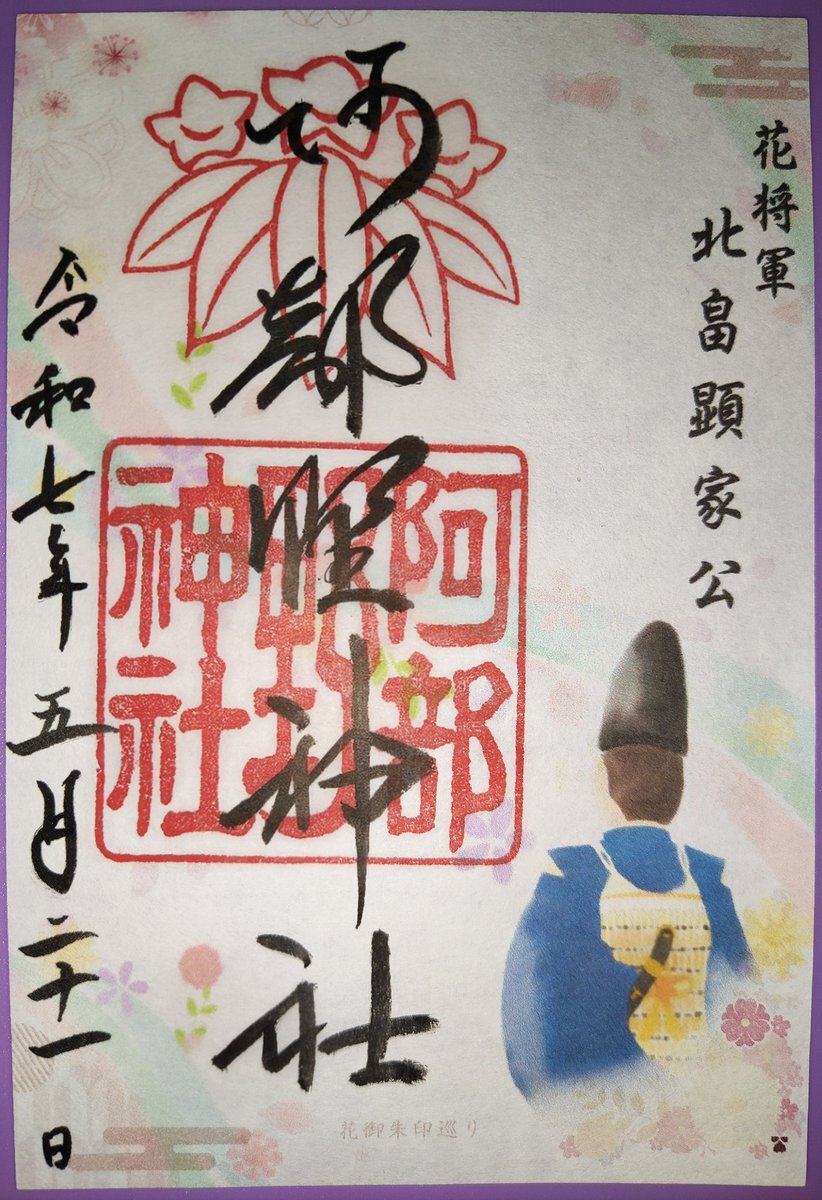 花将軍
北畠顕家公
阿部野神社
阿部
野
神社
令和七年五月二十一日
花御朱印巡り